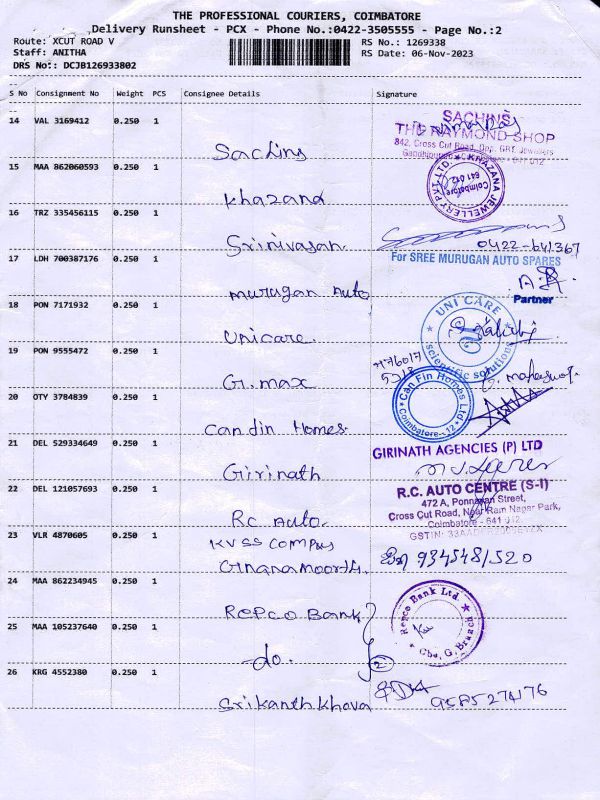 THE PROFESSIONAL COURIERS, COIMBATORE
Delivery Runsheet - PCX - Phone No.:0422-3505555 - Page No.:2
Route: XCUT ROAD V
RS No.: 1269338
Staff: ANITHA
RS Date: 06-Nov-2023
DRS No:: DCJB126933802
S No Consignment No Weight PCS Consignee Details Signature
14 VAL 3169412 0.250 1 Sachins
SACHINS
THE RAYMOND SHOP
842, Cross Cut Road, Opp. GRT. Jewellers
15 MAA 862060593 0.250 1 Khazana
KHAZANA JEWELLERY PVT. LTD.
Coimbatore
641 012
16 TRZ 335456115 0.250 1 Srinivasan
0422-641367
17 LDH 700387176 0.250 1 Murugan Auto
For SREE MURUGAN AUTO SPARES
Partner
18 PON 7171932 0.250 1 Unicare
UNI CARE
scientific solutions
19 PON 9555472 0.250 1 G.max
20 OTY 3784839 0.250 1 Candin Homes
Can Fin Homes Ltd
Coimbatore-12
21 DEL 529334649 0.250 1 Girinath
GIRINATH AGENCIES (P) LTD
22 DEL 121057693 0.250 1 RC Auto
R.C. AUTO CENTRE (S-I)
472 A, Ponnaiyan Street,
Cross Cut Road, Near Ram Nagar Park,
Coimbatore - 641 012
GSTIN:
23 VLR 4870605 0.250 1 KVSS Compus
Gnanamoorth.
9345481520
24 MAA 862234945 0.250 1 Repco Bank
Repco Bank Ltd.
Cbe, G. Branch
25 MAA 105237640 0.250 1 -do.
2
26 KRG 4552380 0.250 1 Srikanth Khava
9585274176